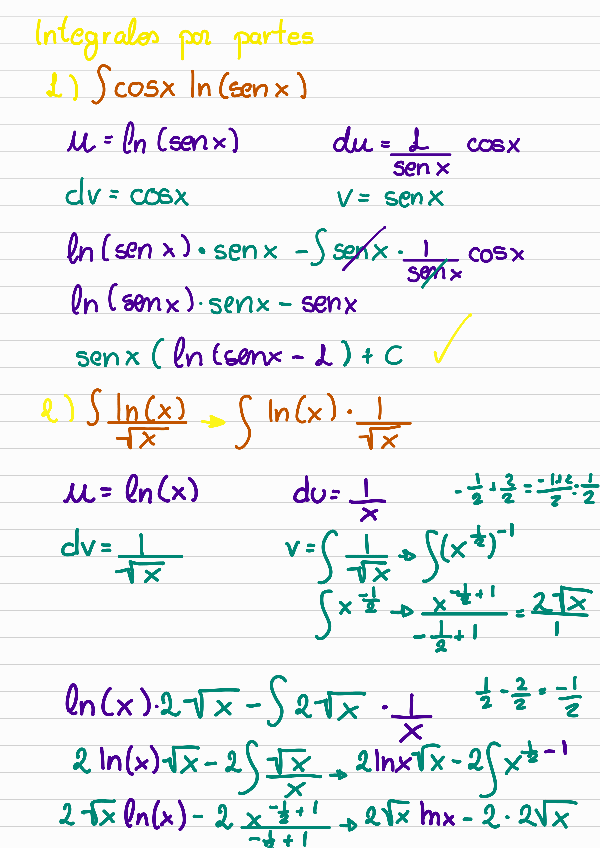 Integrales por partes
1) ∫ cosx ln(sen x)
u = ln (senx) du = 1/sen x cosx
dv = cosx v = senx
ln(sen x) · sen x - ∫ senx · 1/senx cosx
ln(senx) · senx - senx
senx ( ln(senx - 1) + C ✓
2) ∫ ln(x)/√x → ∫ ln(x) · 1/√x
u = ln(x) du = 1/x -1/2 + 2/2 = -1+2/2 = 1/2
dv = 1/√x v = ∫ 1/√x → ∫ (x^1/2)^-1
∫ x^-1/2 → x^(-1/2+1)/(-1/2+1) = 2√x/1
ln(x) · 2√x - ∫ 2√x · 1/x 1/2 - 2/2 = -1/2
2 ln(x)√x - 2∫ √x/x → 2lnx√x - 2∫ x^(1/2-1)
2√x ln(x) - 2 x^(-1/2+1)/(-1/2+1) → 2√x lnx - 2 · 2√x